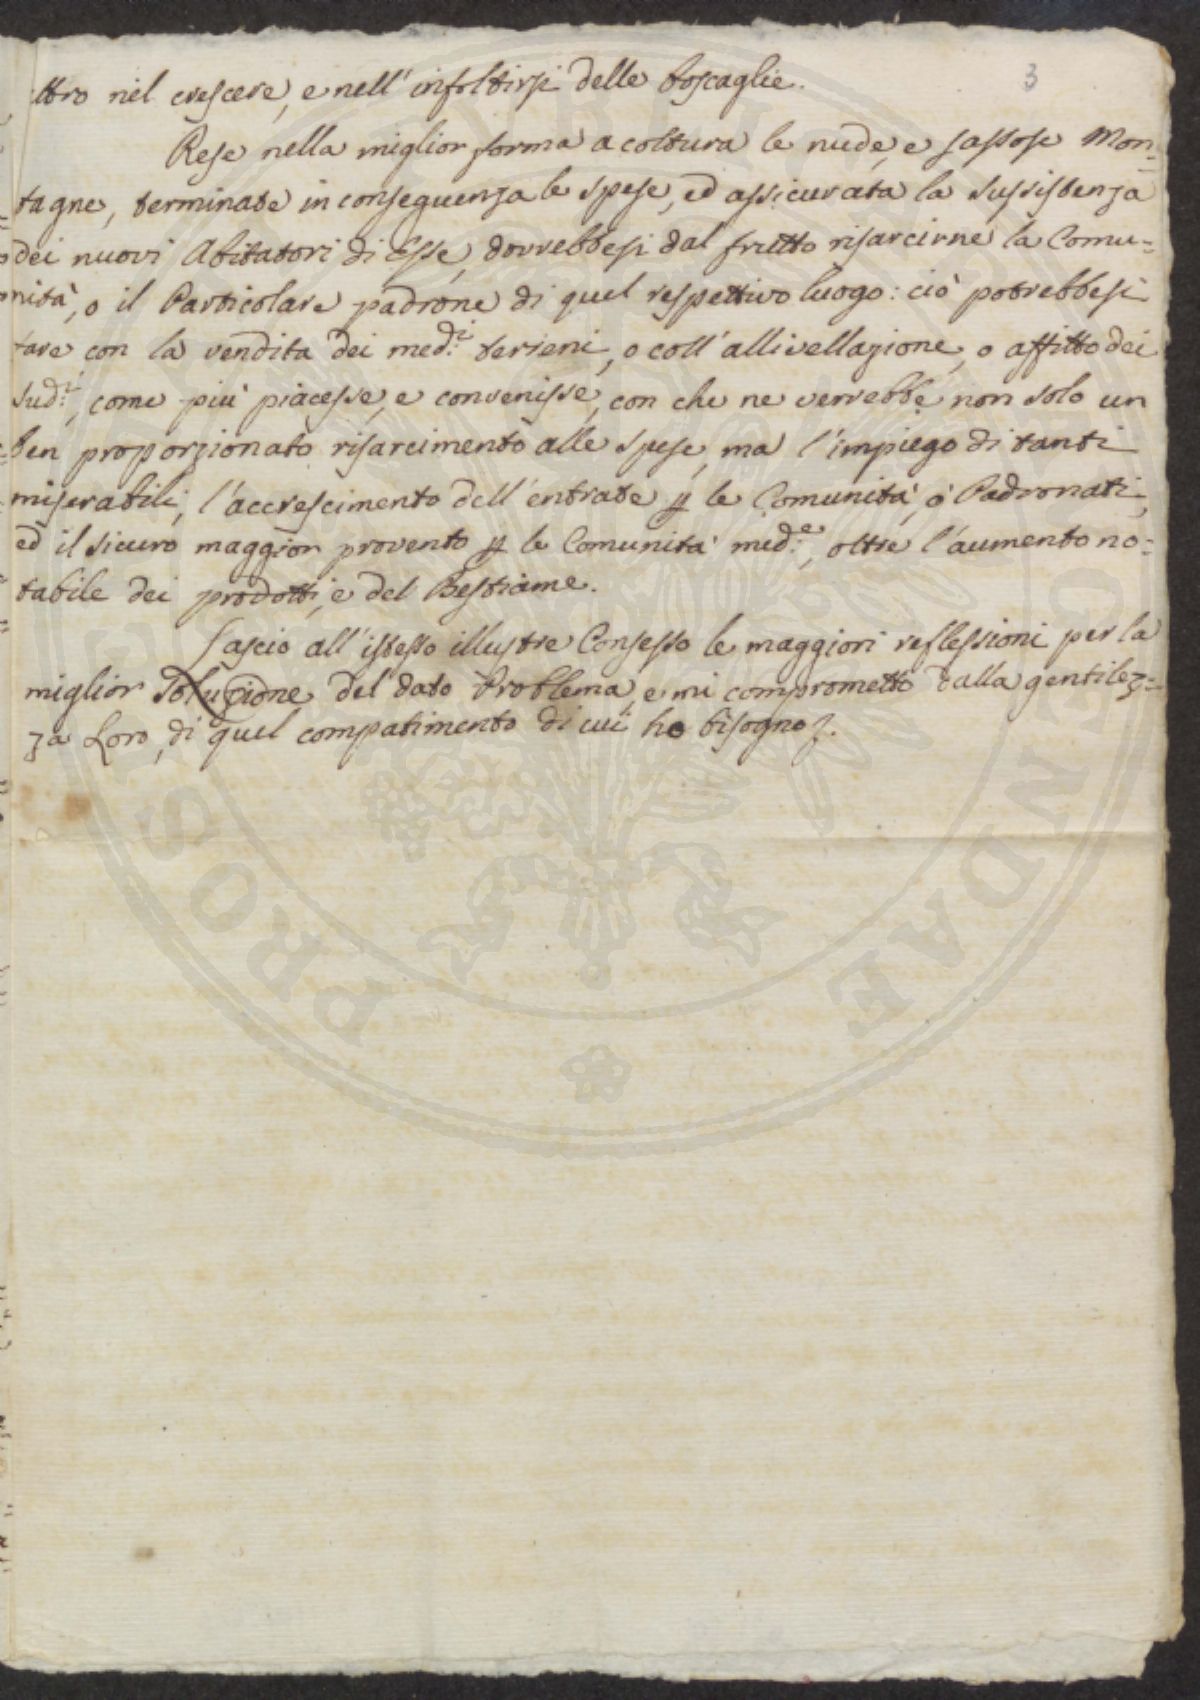 3
ltro nel crescere, e nell'infoltirsi delle boscaglie.
Rese nella miglior forma a coltura le nude, e sassose Mon=
tagne, terminate in conseguenza le spese, ed assicurata la sussistenza
dei nuovi Abitatori di Esse, dovrebbesi dal frutto risarcirne la Comu=
nità, o il Particolare padrone di quel respettivo luogo: ciò potrebbesi
fare con la vendita dei med.i terreni, o coll'allivellazione, o affitto dei
sud.i, come più piacesse, e convenisse, con che ne verrebbe non solo un
ben proporzionato risarcimento alle spese, ma l'impiego di tanti
miserabili, l'accrescimento dell'entrate p le Comunità, o Padronati,
ed il sicuro maggior provento p le Comunità med.e, oltre l'aumento no=
tabile dei prodotti, e del Bestiame.
Lascio all'istesso illustre Consesso le maggiori reflessioni per la
miglior Soluzione del dato Problema, e mi comprometto dalla gentilez=
za Loro, di quel compatimento di cui ho bisogno.
PUBLICAE
PROSPERITATIS AUGENDAE